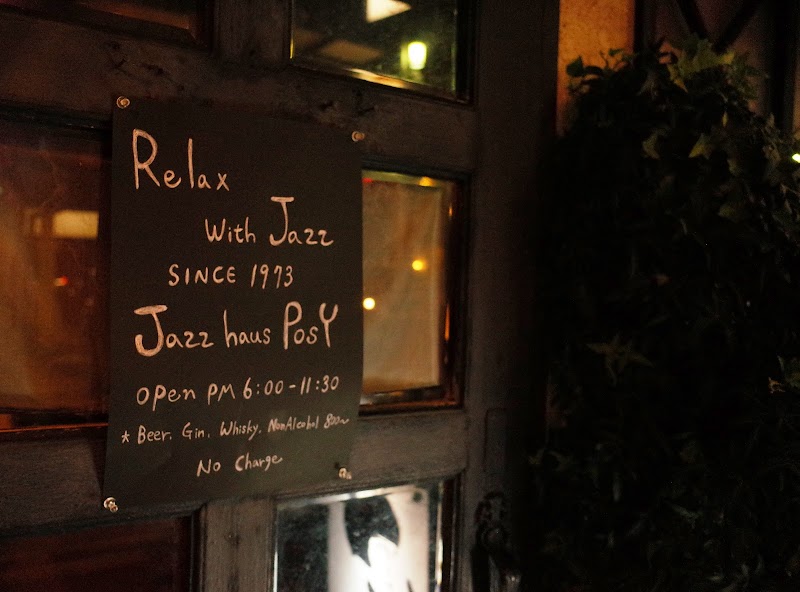 Relax
With Jazz
SINCE 1973
Jazz haus PosY
open PM 6:00-11:30
* Beer. Gin. Whisky. NonAlcohol 800~
No Charge